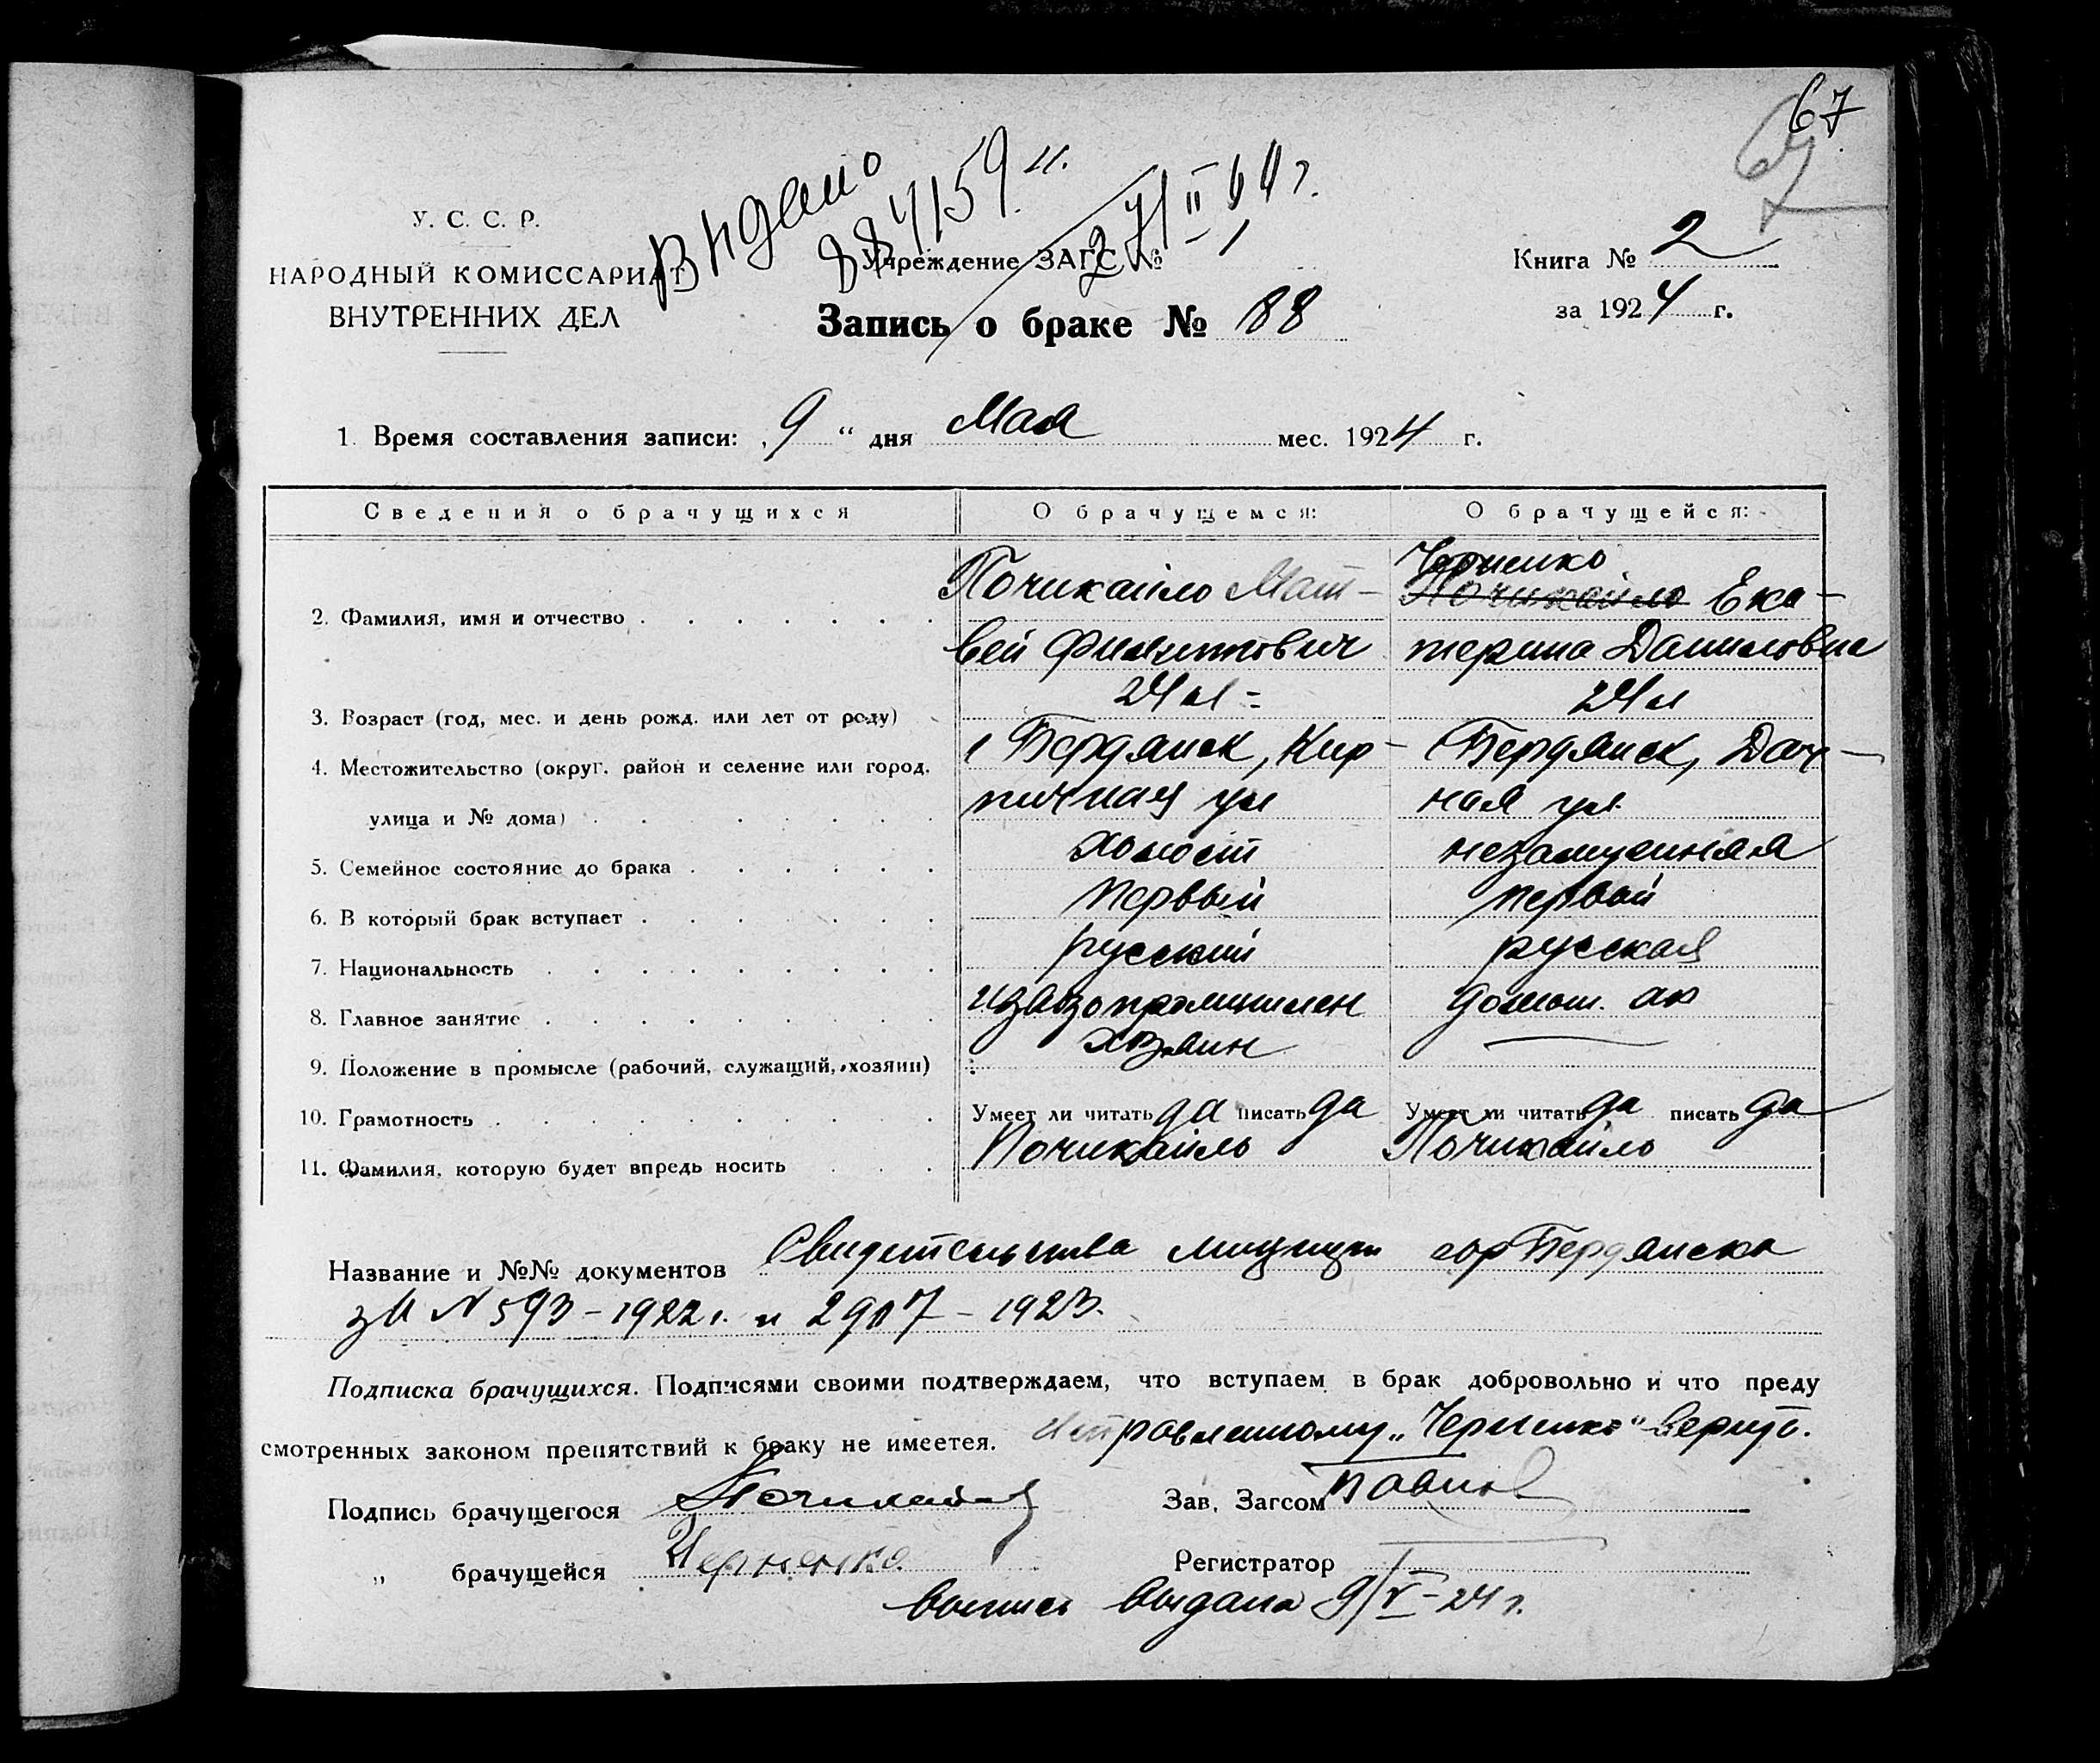 67
67
Видано
884159 н.
24/II 60 г.
У. С. С. Р.
НАРОДНЫЙ КОМИССАРИАТ
ВНУТРЕННИХ ДЕЛ
Учреждение ЗАГС №
Запись о браке № 88
Книга № 2
за 1924 г.
1. Время составления записи: „9“ дня Мая мес. 1924 г.
Сведения о брачущихся О брачущемся: О брачущейся:
2. Фамилия, имя и отчество Почикайло Мат- Черненко Почикайло Ека-
вей Филиппович терина Даниловна
3. Возраст (год, мес. и день рожд. или лет от роду) 24 л 24 л
4. Местожительство (округ. район и селение или город. г Бердянск, Кир- Бердянск, Дач-
улица и № дома) пичная ул ная ул.
5. Семейное состояние до брака холост незамужняя
6. В который брак вступает первый первый
7. Национальность русский русская
8. Главное занятие извозопромышлен домаш.
9. Положение в промысле (рабочий, служащий, хозяин) хозяин
10. Грамотность Умеет ли читать да писать да Умеет ли читать да писать да
11. Фамилия, которую будет впредь носить Почикайло Почикайло
Название и №№ документов Свидетельства милиции гор Бердянска
за N 593 – 1922 г. и 2907 – 1923.
Подписка брачущихся. Подписями своими подтверждаем, что вступаем в брак добровольно и что преду
смотренных законом препятствий к браку не имеется. Исправленному „Черненко“ верить.
Подпись брачущегося Почикайло Зав. Загсом
„ брачущейся Черненко. Регистратор
Выпись выдана 9/V–24 г.